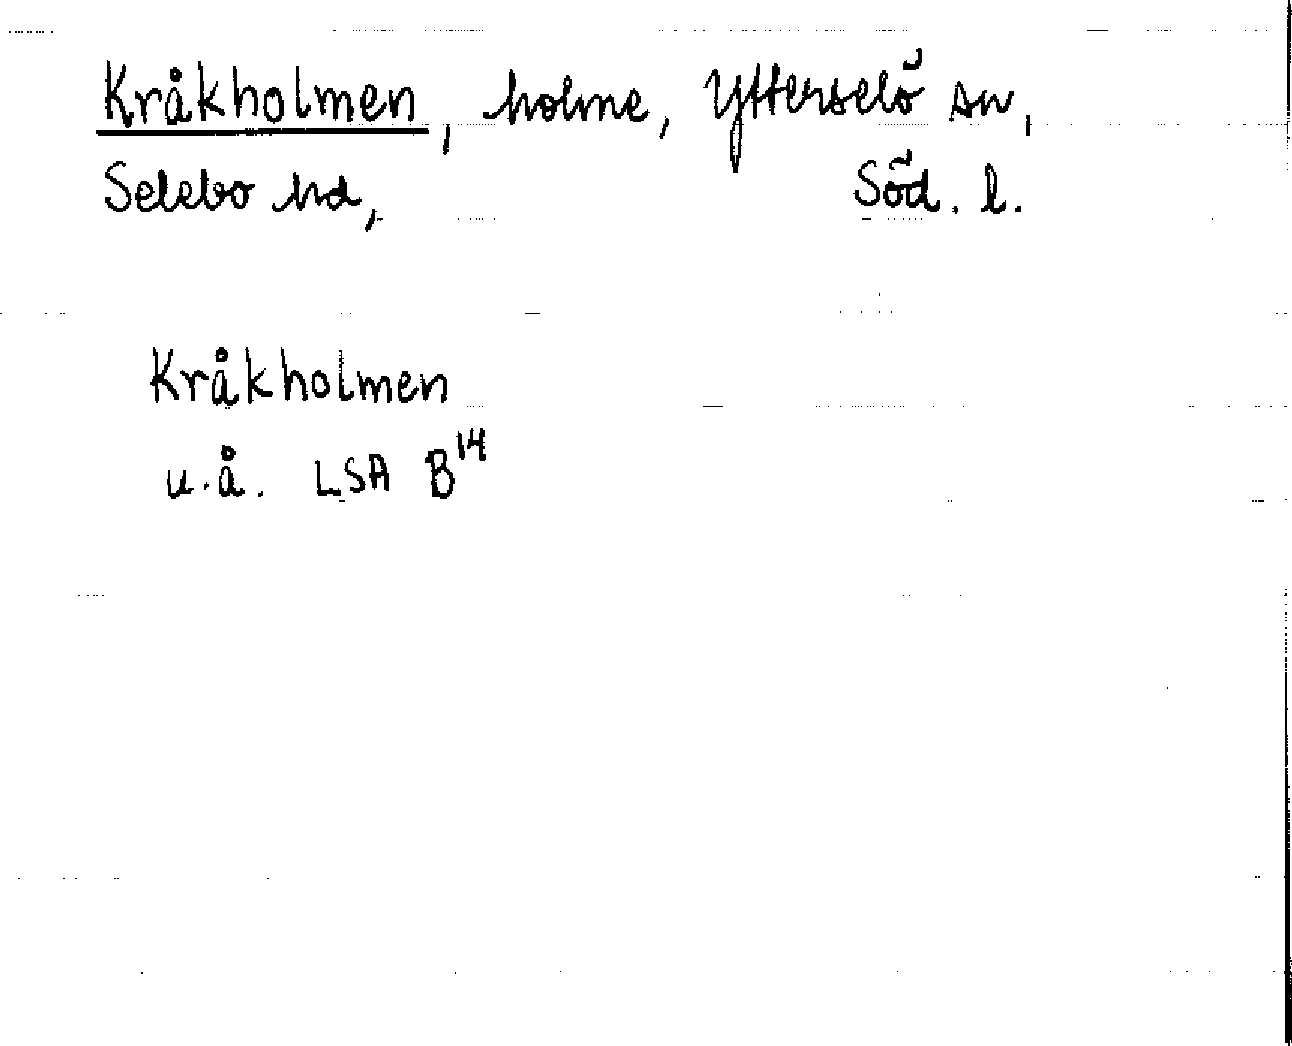 Kråkholmen, holme, Ytterselö sn,
Selebo hd, Söd. l.
Kråkholmen
u.å. LSA B14